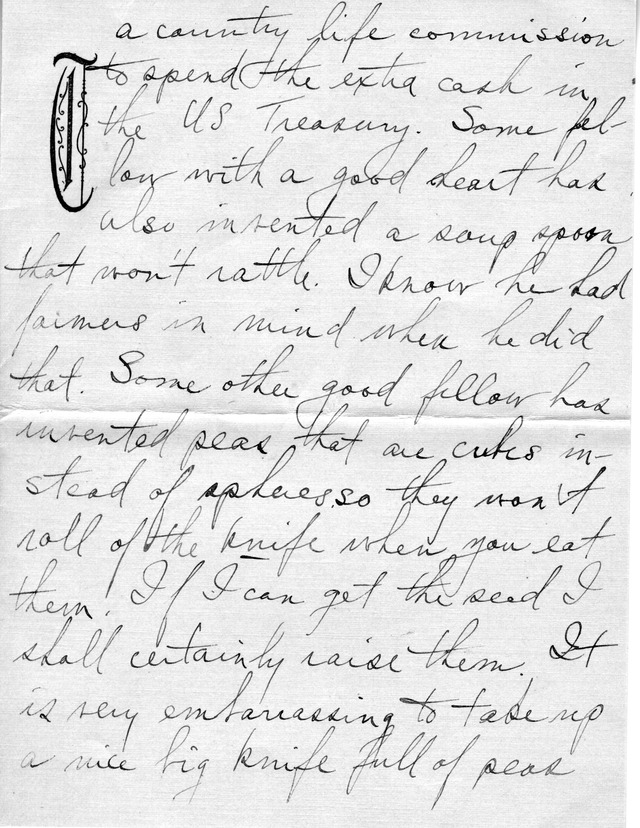 a country life commission
to spend the extra cash in
the US Treasury. Some fel-
low with a good heart has
also invented a soup spoon
that won't rattle. I know he had
farmers in mind when he did
that. Some other good fellow has
invented peas that are cubes in-
stead of spheres so they won't
roll of the knife when you eat
them. If I can get the seed I
shall certainly raise them. It
is very embarrassing to take up
a nice big knife full of peas